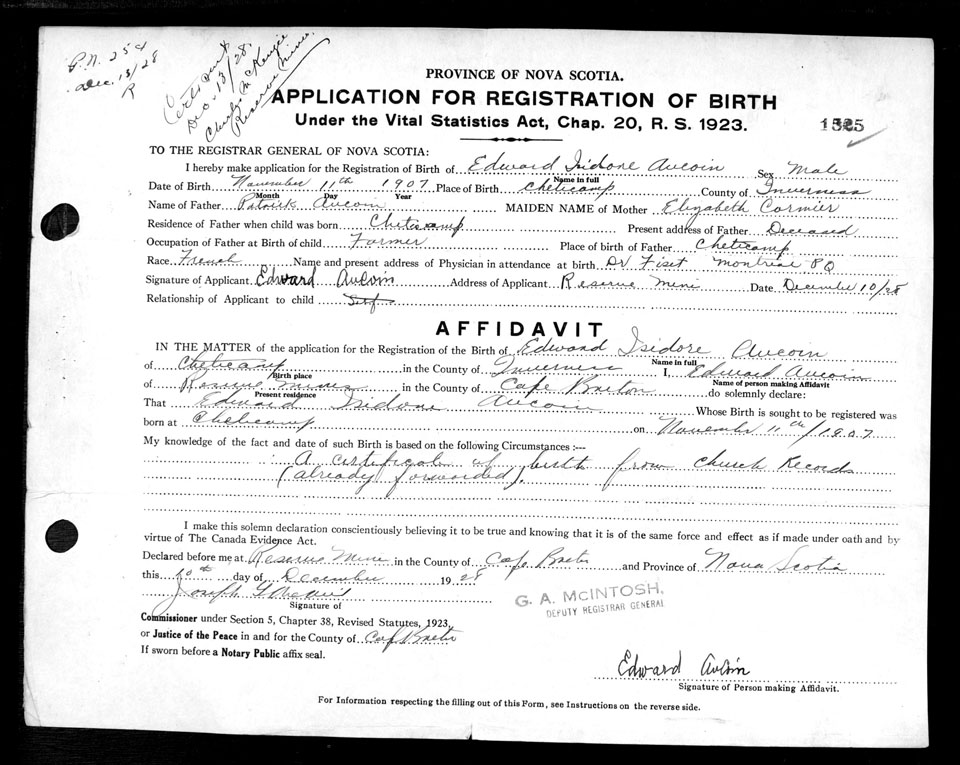 P.N. 254
Dec. 13/28
R
Cert sent
Dec. 13/28.
Charlie McKenzie
Reserve Mines
PROVINCE OF NOVA SCOTIA.
APPLICATION FOR REGISTRATION OF BIRTH
Under the Vital Statistics Act, Chap. 20, R. S. 1923.
TO THE REGISTRAR GENERAL OF NOVA SCOTIA:
I hereby make application for the Registration of Birth of Edward Isidore Aucoin Sex Male
Name in full
Date of Birth November 11th 1907 Place of Birth Cheticamp County of Inverness
Month Day Year
Name of Father Patrick Aucoin MAIDEN NAME of Mother Elizabeth Cormier
Residence of Father when child was born Cheticamp Present address of Father Deceased
Occupation of Father at Birth of child Farmer Place of birth of Father Cheticamp
Race French Name and present address of Physician in attendance at birth Dr Fiset Montreal P Q
Signature of Applicant Edward AuCoin Address of Applicant Reserve Mine Date December 10/28
Relationship of Applicant to child Self
AFFIDAVIT
IN THE MATTER of the application for the Registration of the Birth of Edward Isidore Aucoin
Name in full
of Cheticamp in the County of Inverness I, Edward Aucoin
Birth place Name of person making Affidavit
of Reserve Mines in the County of Cape Breton do solemnly declare:
Present residence
That Edward Isidore Aucoin Whose Birth is sought to be registered was
born at Cheticamp on November 11th/1907
My knowledge of the fact and date of such Birth is based on the following Circumstances :—
A certificate of birth from Church Records
(already forwarded).
I make this solemn declaration conscientiously believing it to be true and knowing that it is of the same force and effect as if made under oath and by
virtue of The Canada Evidence Act.
Declared before me at Reserve Mine in the County of Cape Breton and Province of Nova Scotia
this 10th day of December 1928
Joseph
G. A. McINTOSH,
DEPUTY REGISTRAR GENERAL
Signature of
Commissioner under Section 5, Chapter 38, Revised Statutes, 1923,
or Justice of the Peace in and for the County of Cape Breton
If sworn before a Notary Public affix seal.
Edward AuCoin
Signature of Person making Affidavit.
For Information respecting the filling out of this Form, see Instructions on the reverse side.